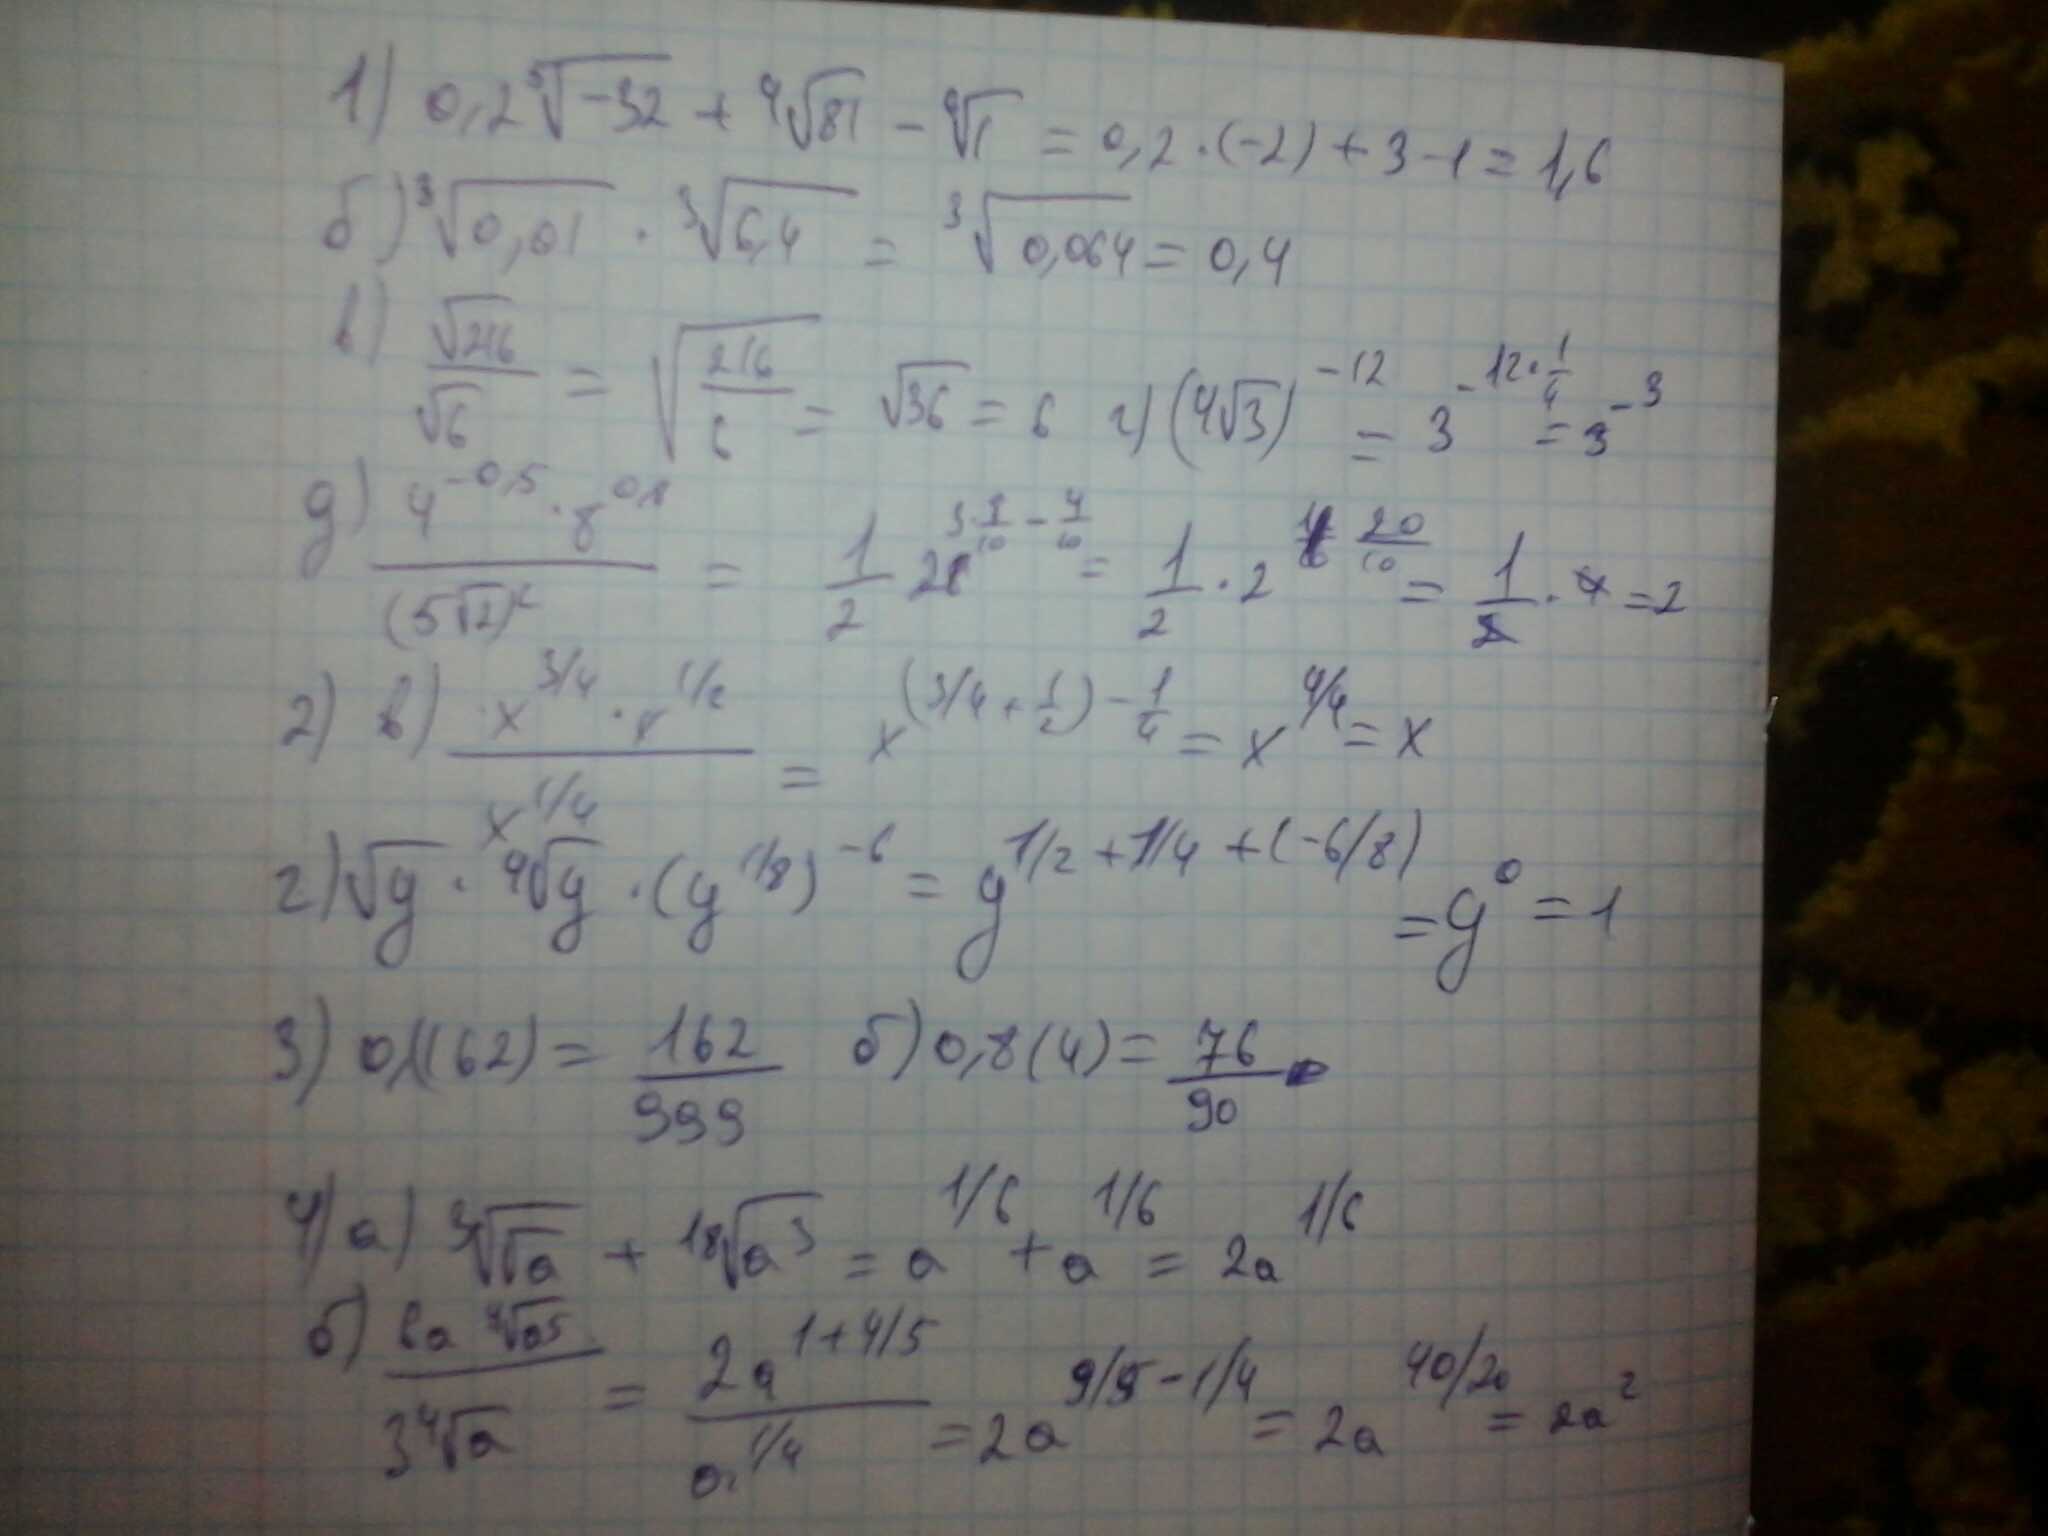 1) 0,2⁵√-32 + ⁴√81 - ⁶√1 = 0,2·(-2)+3-1=1,6
б) ³√0,01 · ³√6,4 = ³√0,064 = 0,4
в) √216/√6 = √(216/6) = √36 = 6 г) (4√3)⁻¹² = 3^(-12·1/4) = 3⁻³
д) 4^(-0,5)·8^(0,8)/(5√2)² = 1/2 2^(3·8/10 - 4/10) = 1/2·2^(20/10) = 1/2·4=2
2) в) x^(3/4)·x^(1/2)/x^(1/4) = x^((3/4+1/2)-1/4) = x^(4/4) = x
г) √y · ⁴√y · (y^(1/8))⁻⁶ = y^(1/2+1/4+(-6/8)) = y⁰ = 1
3) 0,1(62) = 162/999 б) 0,8(4) = 76/90
4) а) ³√√a + ¹⁸√a³ = a^(1/6) + a^(1/6) = 2a^(1/6)
б) 6a ⁴√a⁵/3⁴√a = 2a^(1+4/5)/a^(1/4) = 2a^(9/5-1/4) = 2a^(40/20) = 2a²